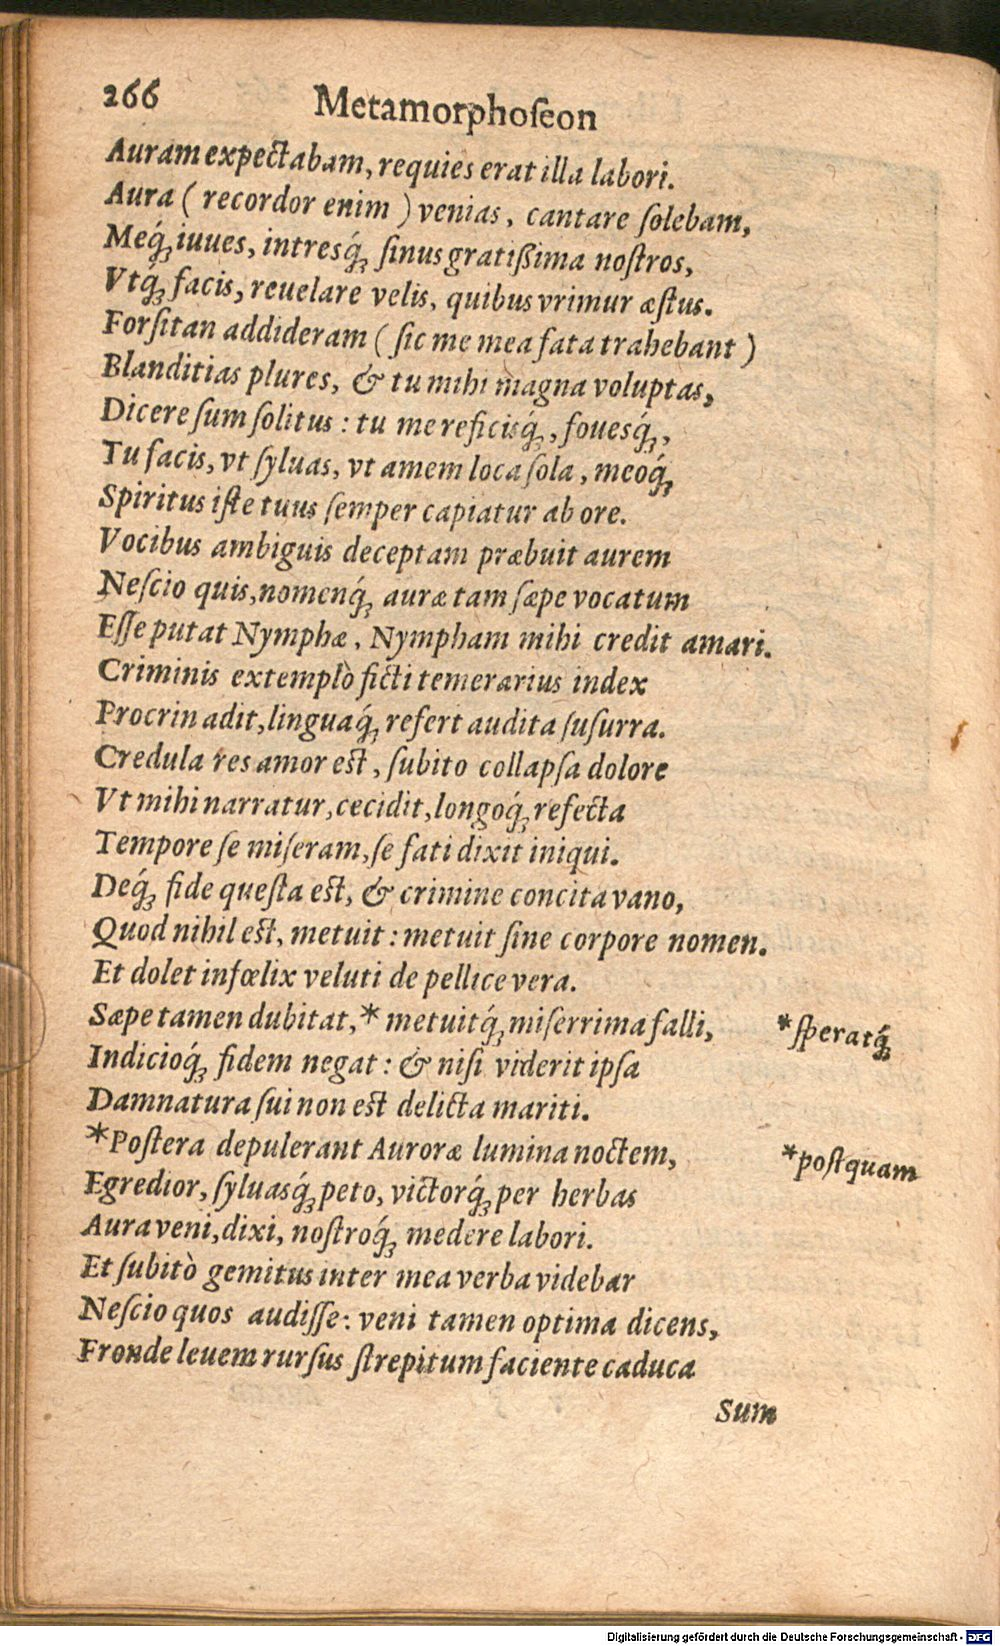 266 Metamorphoſeon
Auram expectabam, requies erat illa labori.
Aura ( recordor enim ) venias, cantare ſolebam,
Meq́ꝫ iuues, intresq́ꝫ ſinus gratißima noſtros,
Vtq́ꝫ facis, reuelare velis, quibus vrimur æſtus.
Forſitan addideram ( ſic me mea fata trahebant )
Blanditias plures, & tu mihi magna voluptas,
Dicere ſum ſolitus : tu me reficisq́ꝫ, fouesq́ꝫ,
Tu facis, vt ſyluas, vt amem loca ſola, meoq́ꝫ
Spiritus iſte tuus ſemper capiatur ab ore.
Vocibus ambiguis deceptam præbuit aurem
Neſcio quis, nomenq́ꝫ auræ tam ſæpe vocatum
Eſſe putat Nymphæ, Nympham mihi credit amari.
Criminis extemplò ficti temerarius index
Procrin adit, linguaq́ꝫ refert audita ſuſurra.
Credula res amor eſt, ſubito collapſa dolore
Vt mihi narratur, cecidit, longoq́ꝫ refecta
Tempore ſe miſeram, ſe fati dixit iniqui.
Deq́ꝫ fide queſta eſt, & crimine concita vano,
Quod nihil eſt, metuit : metuit ſine corpore nomen.
Et dolet infœlix veluti de pellice vera.
Sæpe tamen dubitat, * metuitq́ꝫ miſerrima falli, *ſperatq́ꝫ
Indicioq́ꝫ fidem negat : & niſi viderit ipſa
Damnatura ſui non eſt delicta mariti.
*Poſtera depulerant Auroræ lumina noctem, *poſtquam
Egredior, ſyluasq́ꝫ peto, victorq́ꝫ per herbas
Aura veni, dixi, noſtroq́ꝫ medere labori.
Et ſubitò gemitus inter mea verba videbar
Neſcio quos audiſſe : veni tamen optima dicens,
Fronde leuem rurſus ſtrepitum faciente caduca
Sum
Digitalisierung gefördert durch die Deutsche Forschungsgemeinschaft - DFG